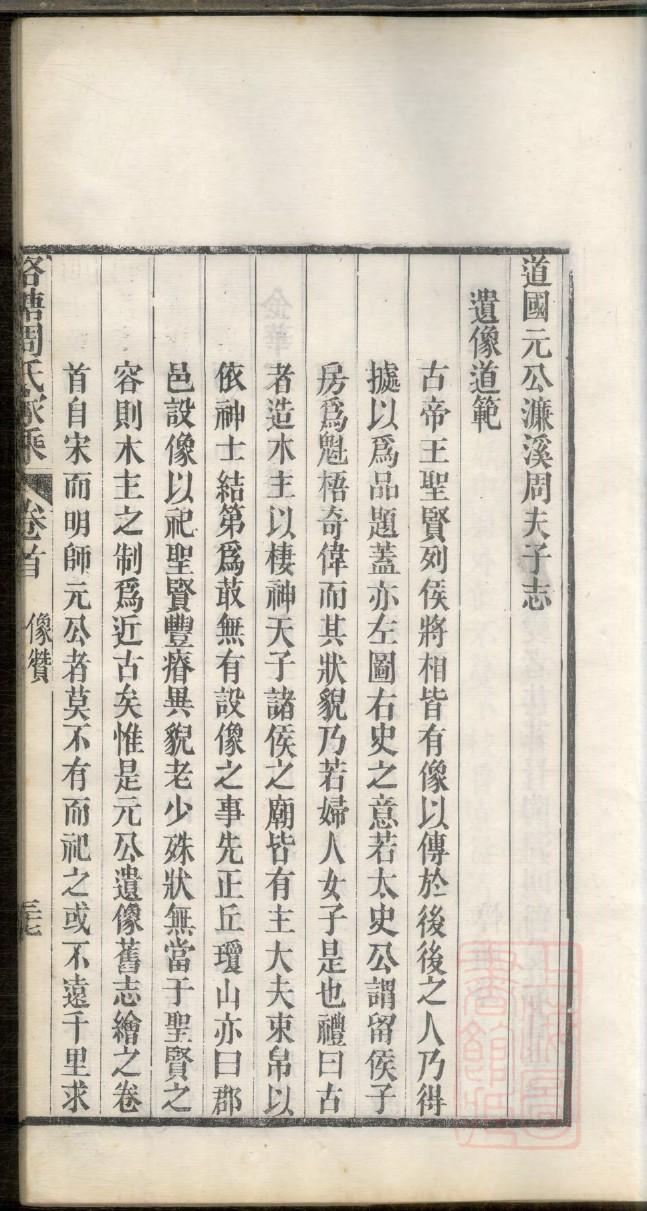 道國元公濂溪周夫子志
遺像道範
古帝王聖賢列侯將相皆有像以傳於後後之人乃得
據以爲品題蓋亦左圖右史之意若太史公謂留侯子
房爲魁梧奇偉而其狀貌乃若婦人女子是也禮曰古
者造木主以棲神天子諸侯之廟皆有主大夫束帛以
依神士結第爲菆無有設像之事先正丘瓊山亦曰郡
邑設像以祀聖賢豐瘠異貌老少殊狀無當于聖賢之
容則木主之制爲近古矣惟是元公遺像舊志繪之卷
首自宋而明師元公者莫不有而祀之或不遠千里求
周氏家乘 卷首 像贊